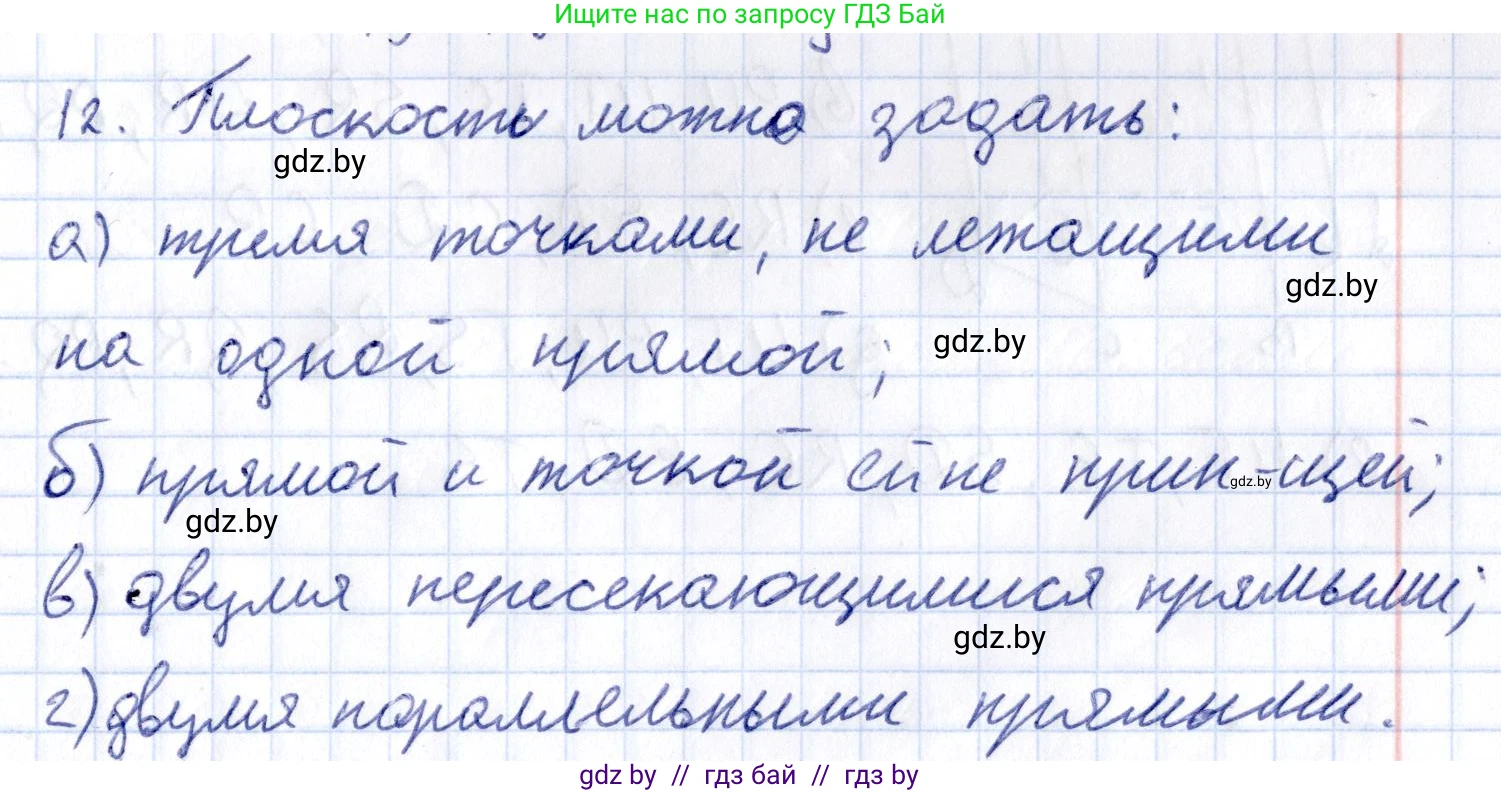 Ищите нас по запросу ГДЗ Бай
12. Плоскость можно задать:
gdz.by
а) тремя точками, не лежащими
gdz.by
на одной прямой;
gdz.by
б) прямой и точкой ей не прин-щей;
gdz.by
gdz.by
в) двумя пересекающимися прямыми;
gdz.by
г) двумя параллельными прямыми.
gdz by // гдз бай // гдз by